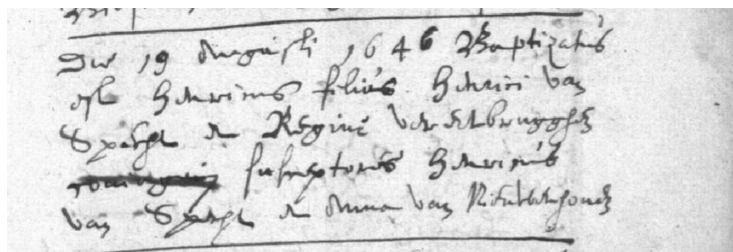 Die 19 Augusti 1646 Baptizatus
est Henricus filius Henrici van
Spacht et Regine verelbrugghen
susceptores Henricus
van Spacht et Anna van